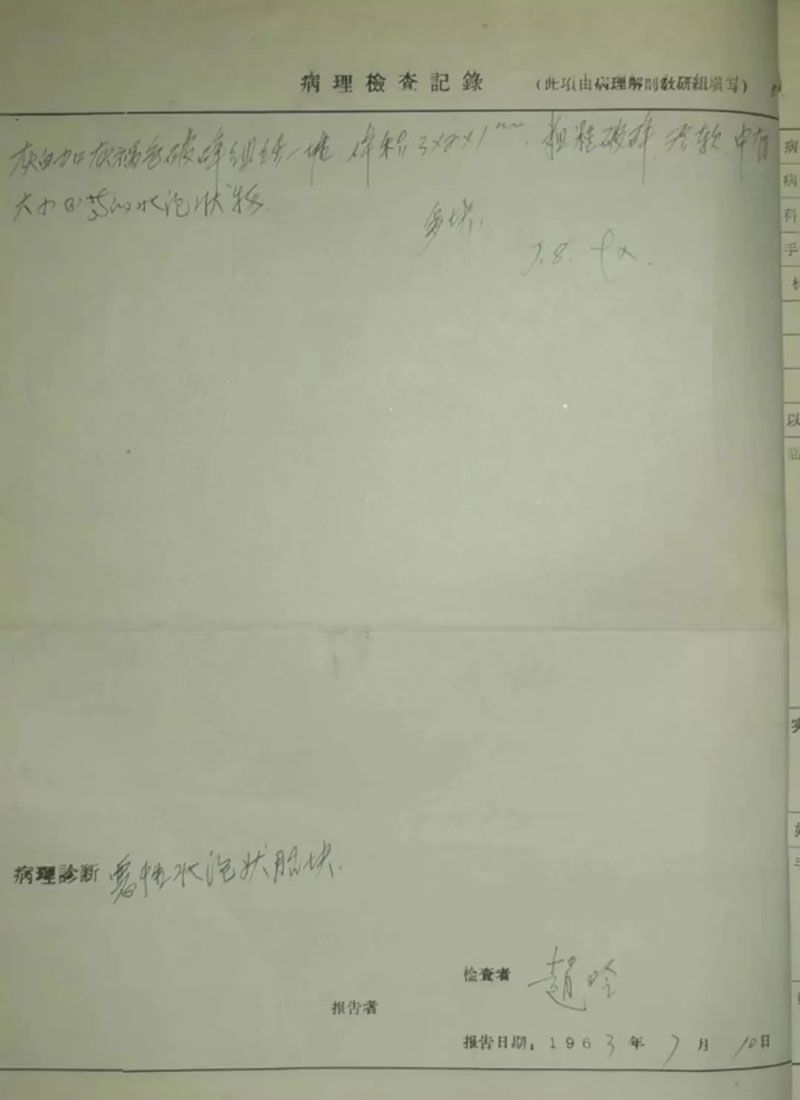 病理檢查記錄 (此項由病理解剖教研組填写)
灰白加灰褐色破碎组织一堆 体积3×2×1 粗糙破碎 质软 中有
大小不等的水泡状物
多块
7.8.
病理診断 水泡状胎块
检查者 趙吟
报告者
报告日期: 1963年7月10日
病
病
科
手
以
临
实